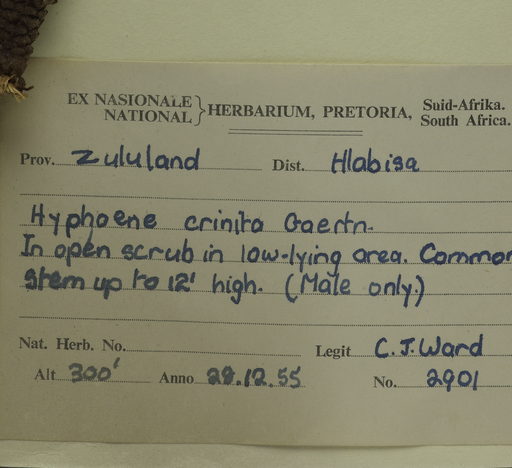 EX NASIONALE
NATIONAL } HERBARIUM, PRETORIA, Suid-Afrika.
South Africa.
Prov. Zululand Dist. Hlabisa
Hyphoene crinita Gaertn.
In open scrub in low-lying area. Common
Stem up to 12' high. (Male only.)
Nat. Herb. No. Legit C.J. Ward
Alt 300' Anno 28.12.55 No. 2901